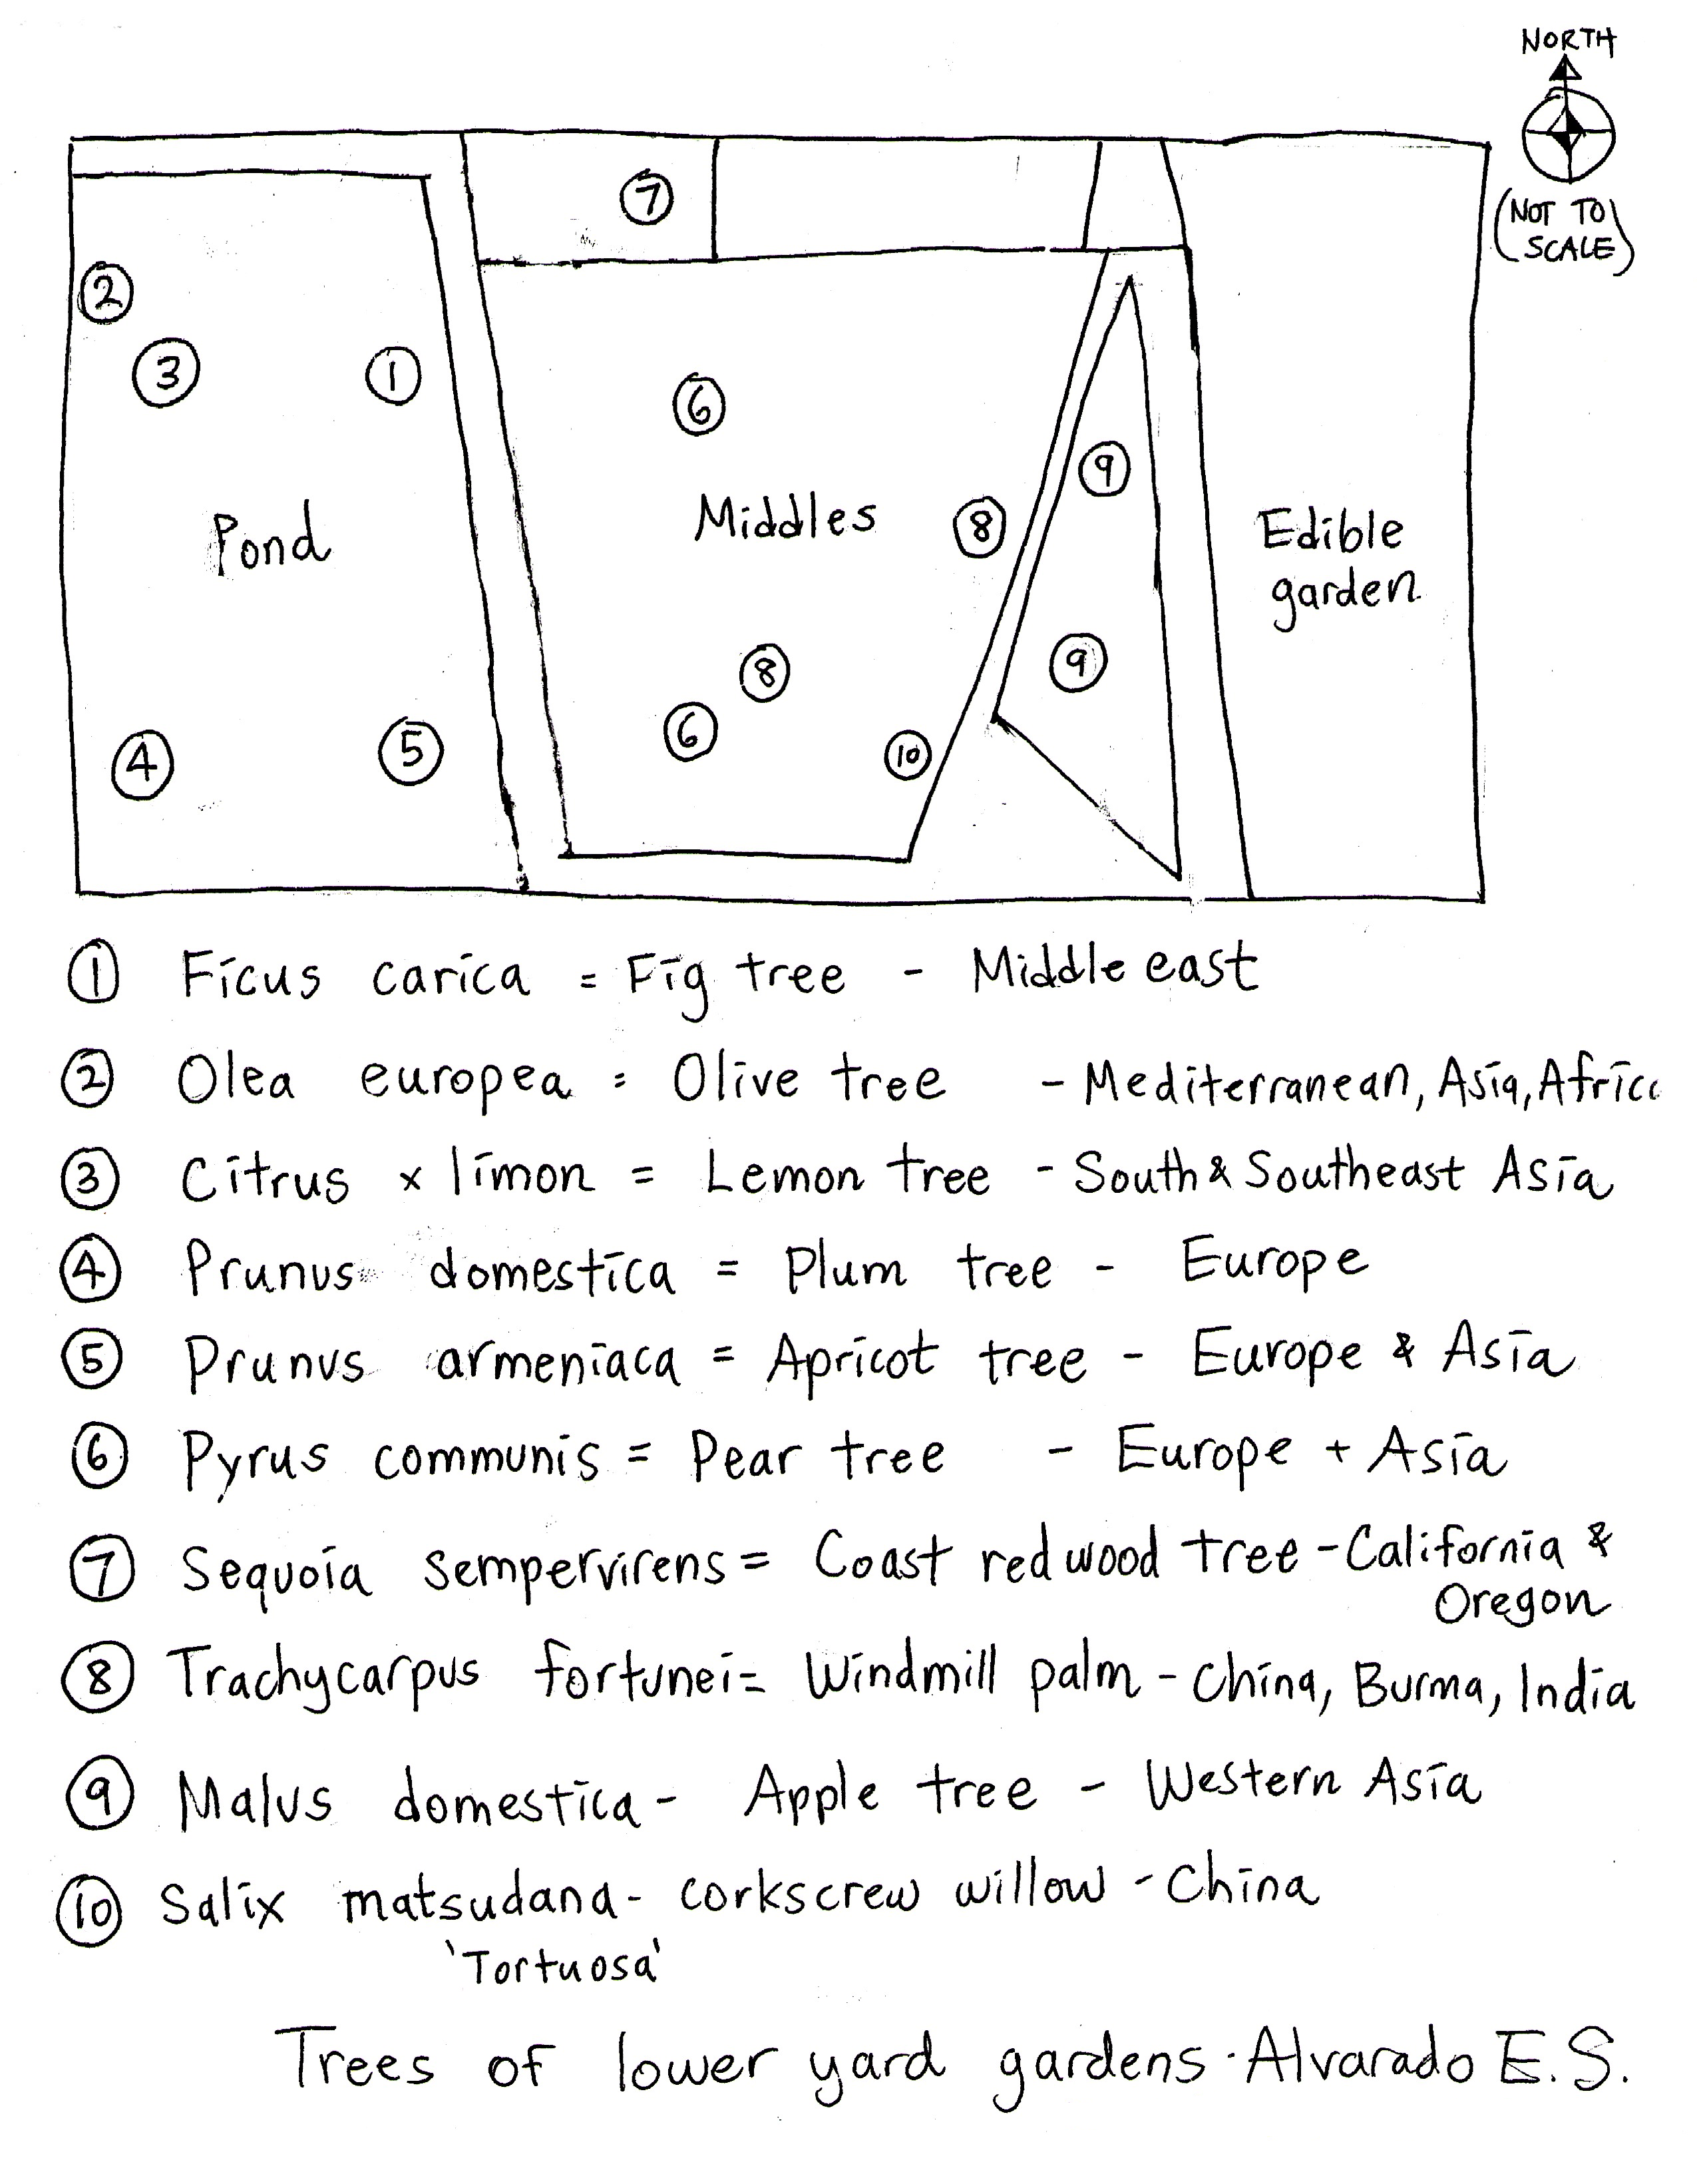 NORTH
(NOT TO
SCALE)
7
2
3
1
6
9
Pond
Middles
8
Edible
garden
8
9
6
4
5
10
1 Ficus carica = Fig tree - Middle east
2 Olea europea = Olive tree - Mediterranean, Asia, Africa
3 Citrus x limon = Lemon tree - South & Southeast Asia
4 Prunus domestica = Plum tree - Europe
5 Prunus armeniaca = Apricot tree - Europe & Asia
6 Pyrus communis = Pear tree - Europe + Asia
7 Sequoia sempervirens = Coast redwood tree - California &
Oregon
8 Trachycarpus fortunei = Windmill palm - China, Burma, India
9 Malus domestica - Apple tree - Western Asia
10 Salix matsudana - corkscrew willow - China
'Tortuosa'
Trees of lower yard gardens · Alvarado E.S.